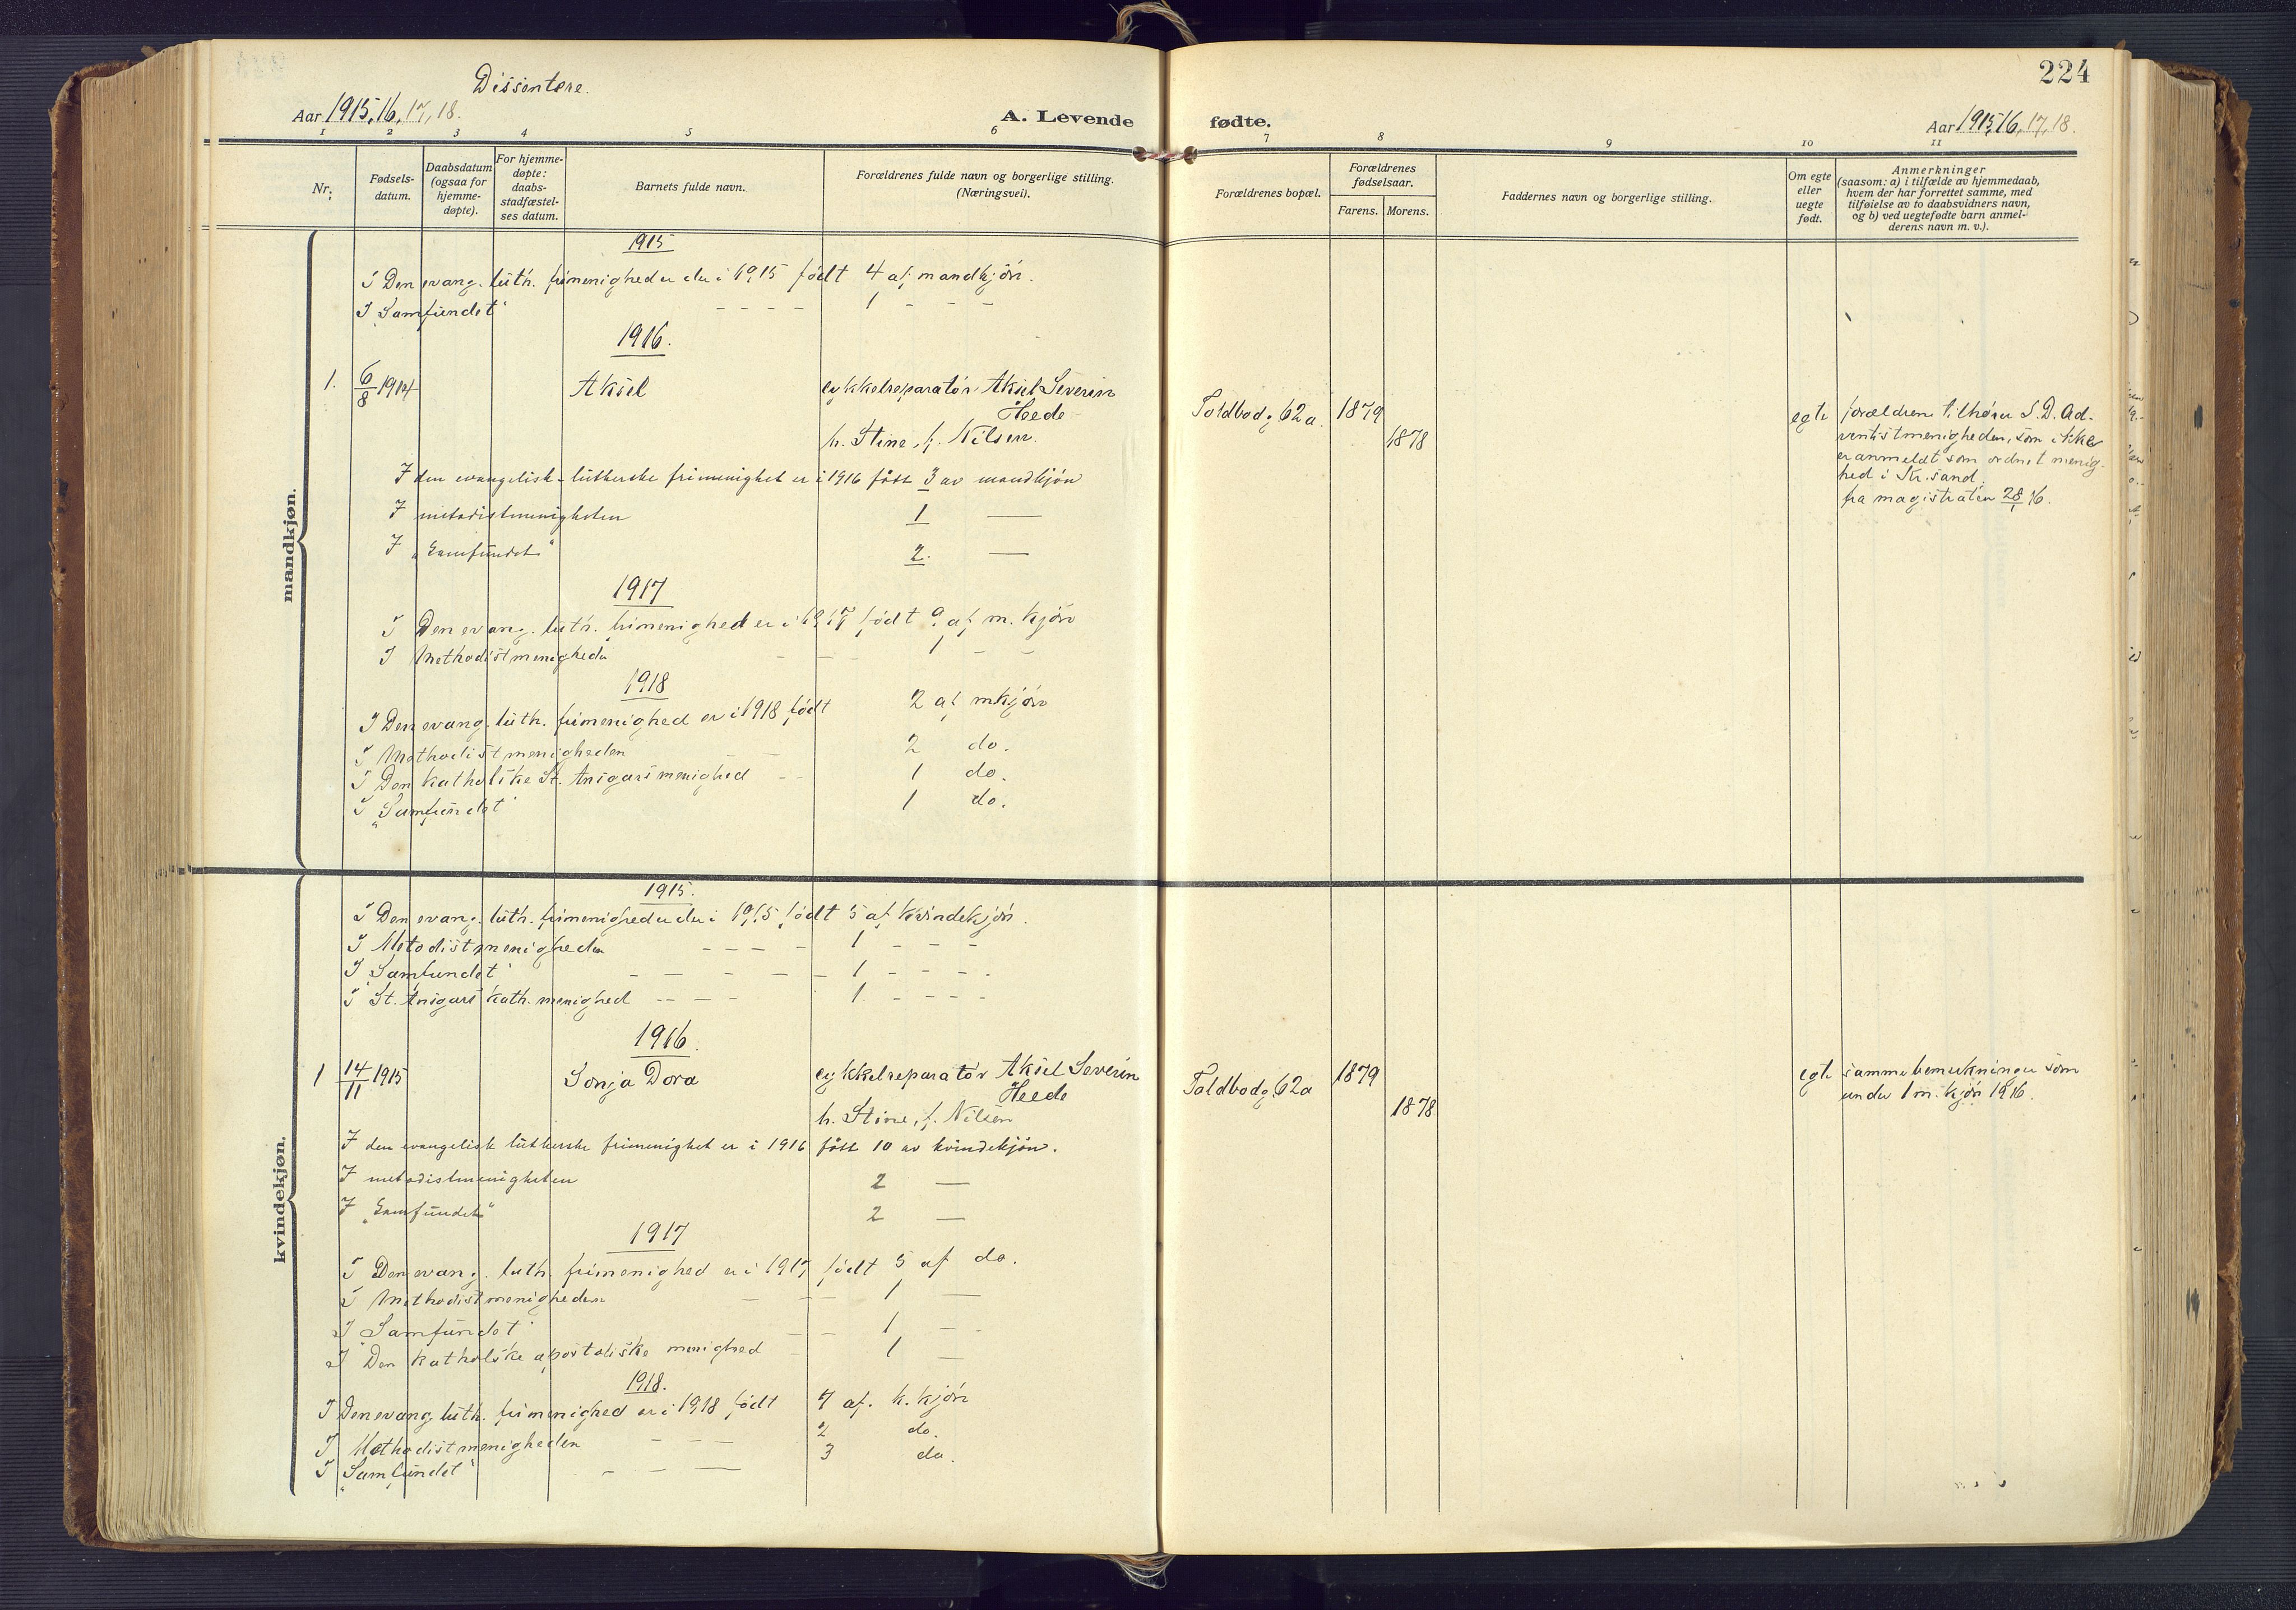 Dissentere.
224
Aar 1915, 16, 17, 18.
A. Levende
fødte.
Aar 1915, 16, 17, 18.
1 2 3 4 5 6 7 8 9 10 11
Nr.
Fødsels-
datum.
Daabsdatum
(ogsaa for
hjemme-
døpte).
For hjemme-
døpte:
daabs-
stadfæstel-
ses datum.
Barnets fulde navn.
Forældrenes fulde navn og borgerlige stilling.
(Næringsvei).
Forældrenes bopæl.
Forældrenes
fødselsaar.
Farens. Morens.
Faddernes navn og borgerlige stilling.
Om egte
eller
uegte
født.
Anmerkninger
(saasom: a) i tilfælde av hjemmedaab,
hvem der har forrettet samme, med
tilføielse av to daabsvidners navn,
og b) ved uegtefødte barn anmel-
derens navn m. v.).
mandkjøn.
1915
I Den evang. luth. frimenighed er der i 1915 født 4 af mandkjøn.
I „Samfundet“ - - - - 1 - - -
1916.
1. 6/8 1914 Aksel cykkelreparatør Aksel Severin Toldbodg 62a. 1879 egte forældrene tilhører S. D. Ad-
Heede ventistmenigheden, som ikke
h. Stine, f. Nilsen. 1878 er anmeldt som ordnet menig-
hed i Kr.sand.
fra magistraten 28/ 16.
I den evangelisk-lutherske frimenighet er i 1916 født 3 av mandkjøn
I metodistmenigheten 1 —
I „Samfundet“ 2. —
1917
I Den evang. luth. frimenighed er i 1917 født 9 af m. kjøn
I Methodistmenigheden - - - 1 - -
1918
I Den evang. luth. frimenighed er i 1918 født 2 af mkjøn
I Methodistmenigheden - - 2 do.
I Den katholske St. Ansgars menighed - - 1 do.
I „Samfundet“ 1 do.
kvindekjøn.
1915.
I Den evang. luth. frimenighed er der i 1915 født 5 af kvindekjøn.
I Metodistmenigheden - - - - 1 - - -
I „Samfundet“ - - - - - - 1 - - - -
I St. Ansgars kath. menighed - - - - 1 - - - -
1916.
1 14/11 1915 Sonja Dora cykkelreparatør Aksel Severin Toldbodg. 62a 1879 egte samme bemerkninger som
Heede under 1 m. kjøn 1916.
h. Stine, f. Nilsen 1878
I den evangelisk lutherske frimenighet er i 1916 født 10 av kvindekjøn.
I metodistmenigheten 2 —
I „Samfundet“ 2 —
1917
I Den evang. luth. frimenighed er i 1917 født 5 af do.
I Methodistmenigheden - - - 1 —
I „Samfundet“ - - 1 - -
I Den katholske apostoliske menighed - 1 —
1918.
I Den evang luth. frimenighed er i 1918 født 7 af. k. kjøn
I Methodistmenigheden - - - 2 do.
I „Samfundet“ - - — 3 do.